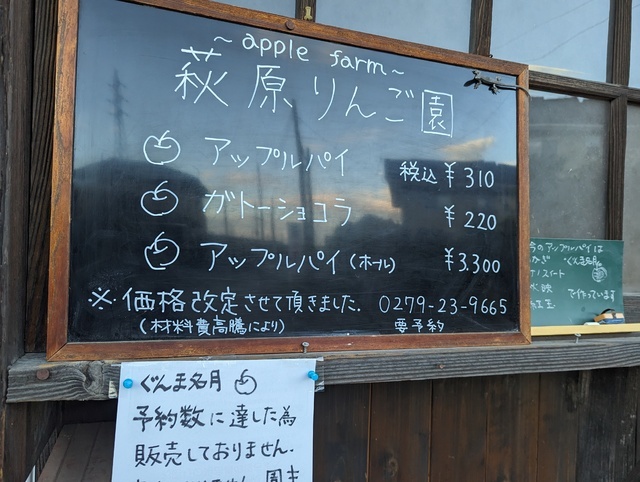 ~ apple farm ~
萩原りんご園
アップルパイ 税込 ¥310
ガトーショコラ ¥220
アップルパイ(ホール) ¥3.300
※価格改定させて頂きました. 0279-23-9665
(材料費高騰により) 要予約
今のアップルパイは
ぐんま名月
スイート
で作っています
ぐんま名月
予約数に達した為
販売しておりません.
園主